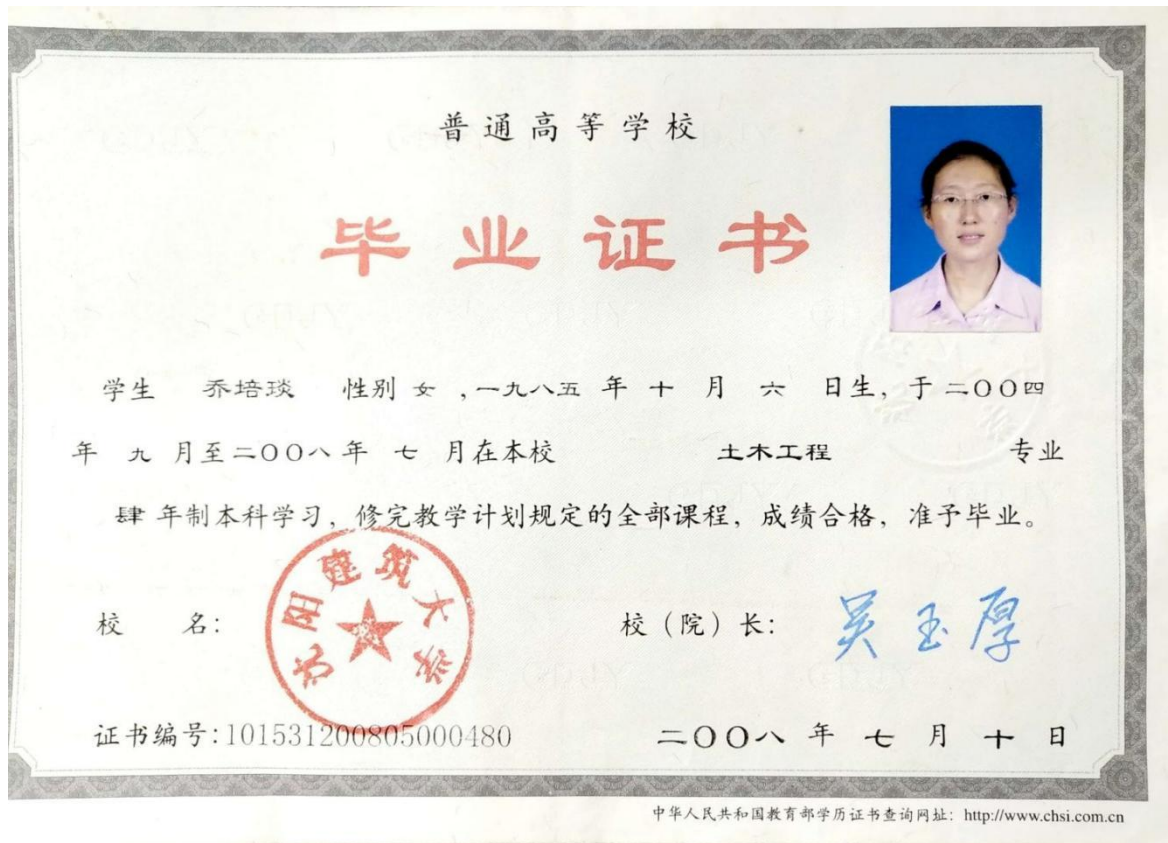 普通高等学校
毕业证书
学生 乔培琰 性别 女 ,一九八五 年 十 月 六 日生, 于 二〇〇四
年 九 月至二〇〇八 年 七 月在本校 土木工程 专业
肆 年制本科学习, 修完教学计划规定的全部课程, 成绩合格, 准予毕业。
沈阳建筑大学
校 名: 校（院）长: 吴玉厚
证书编号:101531200805000480 二〇〇八 年 七 月 十 日
中华人民共和国教育部学历证书查询网址: http://www.chsi.com.cn